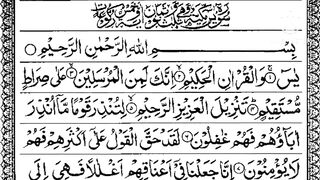 بِسْمِ اللهِ الرَّحْمٰنِ الرَّحِيْمِ
يٰسٓ ۚ وَالْقُرْاٰنِ الْحَكِيْمِ ۙ اِنَّكَ لَمِنَ الْمُرْسَلِيْنَ ۙ عَلٰى صِرَاطٍ
مُّسْتَقِيْمٍ ؕ تَنْزِيْلَ الْعَزِيْزِ الرَّحِيْمِ ۙ لِتُنْذِرَ قَوْمًا مَّآ اُنْذِرَ
اٰبَآؤُهُمْ فَهُمْ غٰفِلُوْنَ لَقَدْ حَقَّ الْقَوْلُ عَلٰٓى اَكْثَرِهِمْ فَهُمْ
لَا يُؤْمِنُوْنَ اِنَّا جَعَلْنَا فِيْٓ اَعْنَاقِهِمْ اَغْلٰلًا فَهِيَ اِلَى